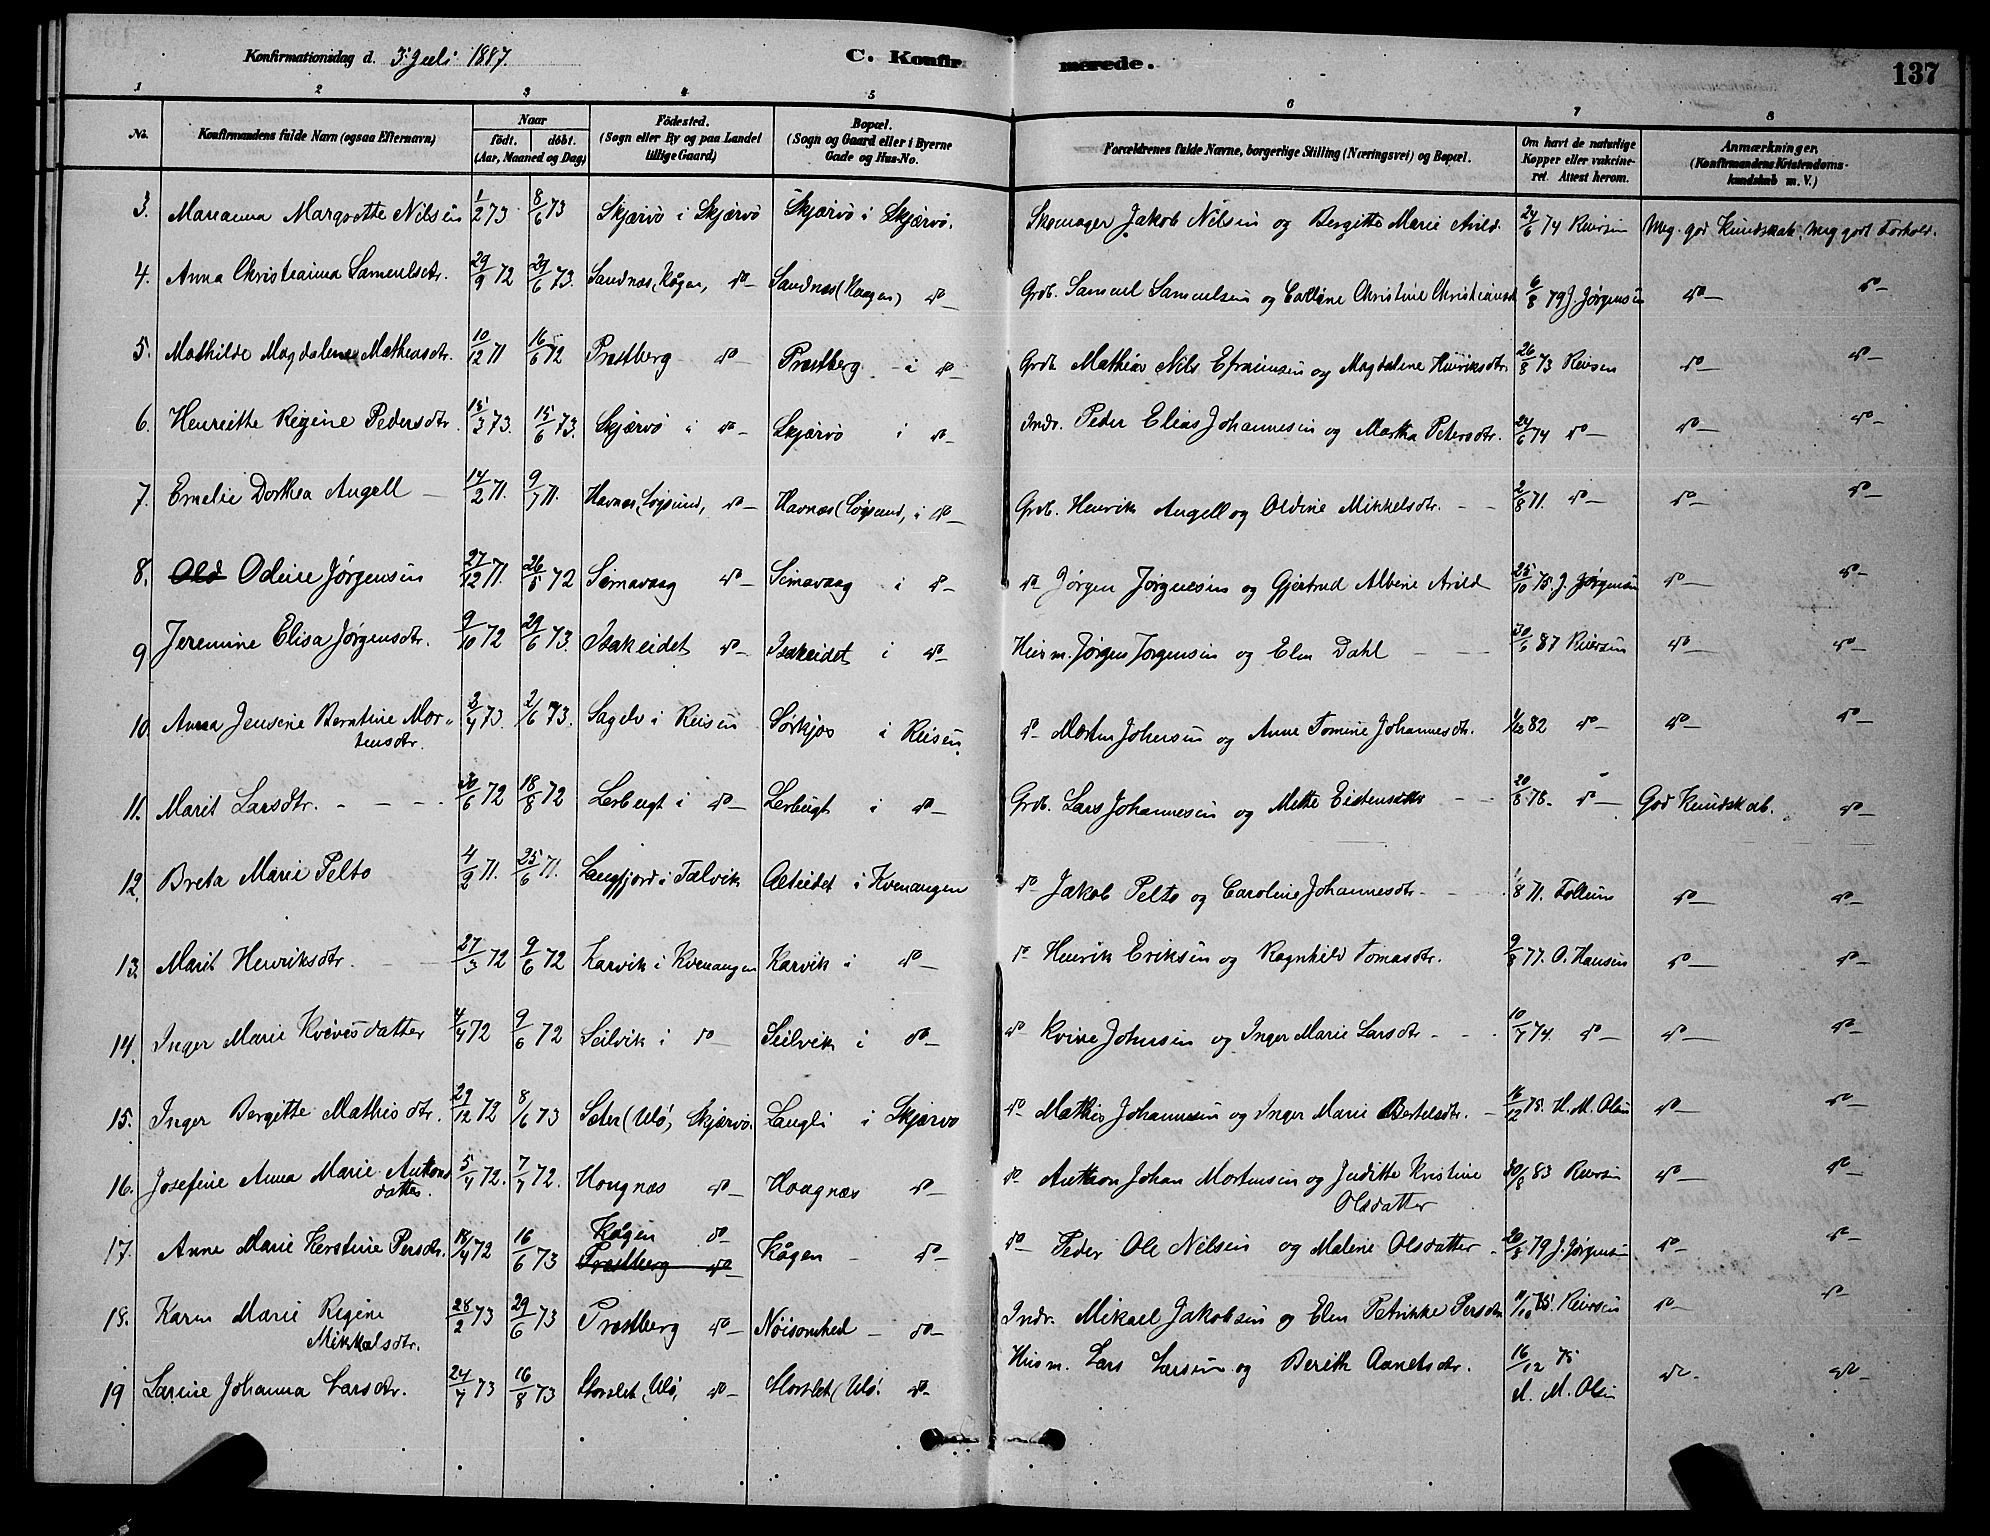 Konfirmationsdag d. 3 Juli 1887.
C. Konfirmerede.
137
1 2 3 4 5 6 7 8
No.
Konfirmandens fulde Navn (ogsaa Efternavn)
Naar
födt. döbt.
(Aar, Maaned og Dag)
Födested.
(Sogn eller By og paa Landet
tillige Gaard)
Bopæl.
(Sogn og Gaard eller i Byerne
Gade og Hus-No.
Forældrenes fulde Navne, borgerlige Stilling (Næringsvei) og Bopæl.
Om havt de naturlige
Kopper eller vakcine-
ret. Attest herom.
Anmærkninger.
(Konfirmandens Kristendoms-
kundskab m. V.)
3. Marianna Margrethe Nilsen 1/2 73 8/6 73 Skjærvö i Skjærvö Skjærvö i Skjærvö. Skomager Jakob Nilsen og Bergitte Marie Arild. 24/6 74 Reiersen Meg. god Kundskab. Meg godt Forhold.
4. Anna Christianna Samuelsdtr. 29/9 72 29/6 73. Sandnæs (Kågen, do Sandnæs (Kaagen) do Grdb. Samuel Samuelsen og Christine 6/8 79 J. Jørgensen do do
5. Mathilde Magdalene Mathiasdtr. 10/12 71 16/6 72 Præstberg do Præstberg i do Grdb. Mathias Nils Efraimsen og Magdalene Henriksdtr. 26/8 73 Reiersen do do
6. Henriette Regine Pedersdtr. 15/3 73. 15/6 73. Skjærvö i do Skjærvö i do Indr. Peder Elias Johannesen og Martha Petersdtr. 24/6 74 do do do
7. Emelie Dorthea Angell 14/2 71. 9/7 71. Havnæs (Lögsund, do Havnæs (Lögsund, i do Grdb. Henrik Angell og Oldine Mikkelsdtr. 2/8 71. do do do
8. Old Odine Jørgensen 27/12 71. 26/5 72 Simavaag do Simavaag i do do Jørgen Jørgensen og Gjertrud Albene Arild 25/10 75. J. Jørgensen do do
9 Jeremine Elisa Jørgensdtr. 9/10 72 29/6 73. Isakeidet do Isakeidet i do Husm. Jørgen Jørgensen og Elen Dahl 30/6 87 Reiersen do do
10. Anna Jensine Berntine Mor-
tensdtr. 3/4 73. 2/6 73. Sagelv i Reisen Sörkjos i Reisen. do Morten Johnsen og Anne Tomine Johannesdtr. 82 do do do
11. Marit Larsdtr. 30/6 72 18/8 72 Lerbugt i do Lerbugt i do Grdb. Lars Johannesen og Mette 20/8 78. do God Kundskab. do
12. Breta Marie Pelto 4/2 71. 25/6 71. Langfjord i Talvik Alteidet i Kvenangen do Jakob Pelto og Caroline Johannesdtr. 1/8 71. Follum do do
13. Marit Henriksdtr. 27/3 72 9/6 72 Karvik i Kvenangen Karvik i do do Henrik Eriksen og Ragnhild Tomasdtr. 9/8 77. O. Hansen do do
14. Inger Marie Kvivesdatter 4/4 72 9/6 72 Seilvik i do Seilvik i do do Kvive Johnsen og Inger Marie Larsdtr 10/7 74. do do do
15. Inger Bergitte Mathisdtr. 29/12 72 8/6 73 Sæter (Ulö, Skjærvö. Langli i Skjærvö do Mathis Johannesen og Inger Marie Bertelsdtr. 16/12 75. H. M. Olsen do do
16. Josefine Anna Marie Antons
datter. 5/4 72. 7/7 72. Hougnæs do Hougnæs do do Anthon Johan Mortensen og Juditte Kristine
Olsdatter 30/8 83 Reiersen do do
17. Anne Marie Kerstine Persdtr. 18/4 72 16/6 73 Kågen do
Præstberg do Kågen do do Peder Ole Nilsen og Malene Olsdatter 20/8 79 J. Jørgensen do do
18. Karen Marie Regine
Mikkelsdtr. 28/2 73 29/6 73 Præstberg do Nöisomhed do Indr. Mikael Jakobsen og Elen Petrikke Persdtr 11/10 75. Reiersen do do
19 Larine Johanna Larsdtr. 24/7 73 16/8 73 Storslet (Ulö, do Storslet (Ulö. do Husm. Lars Larsen og Berith Anetsdtr. 16/12 75
M. Olsen do do